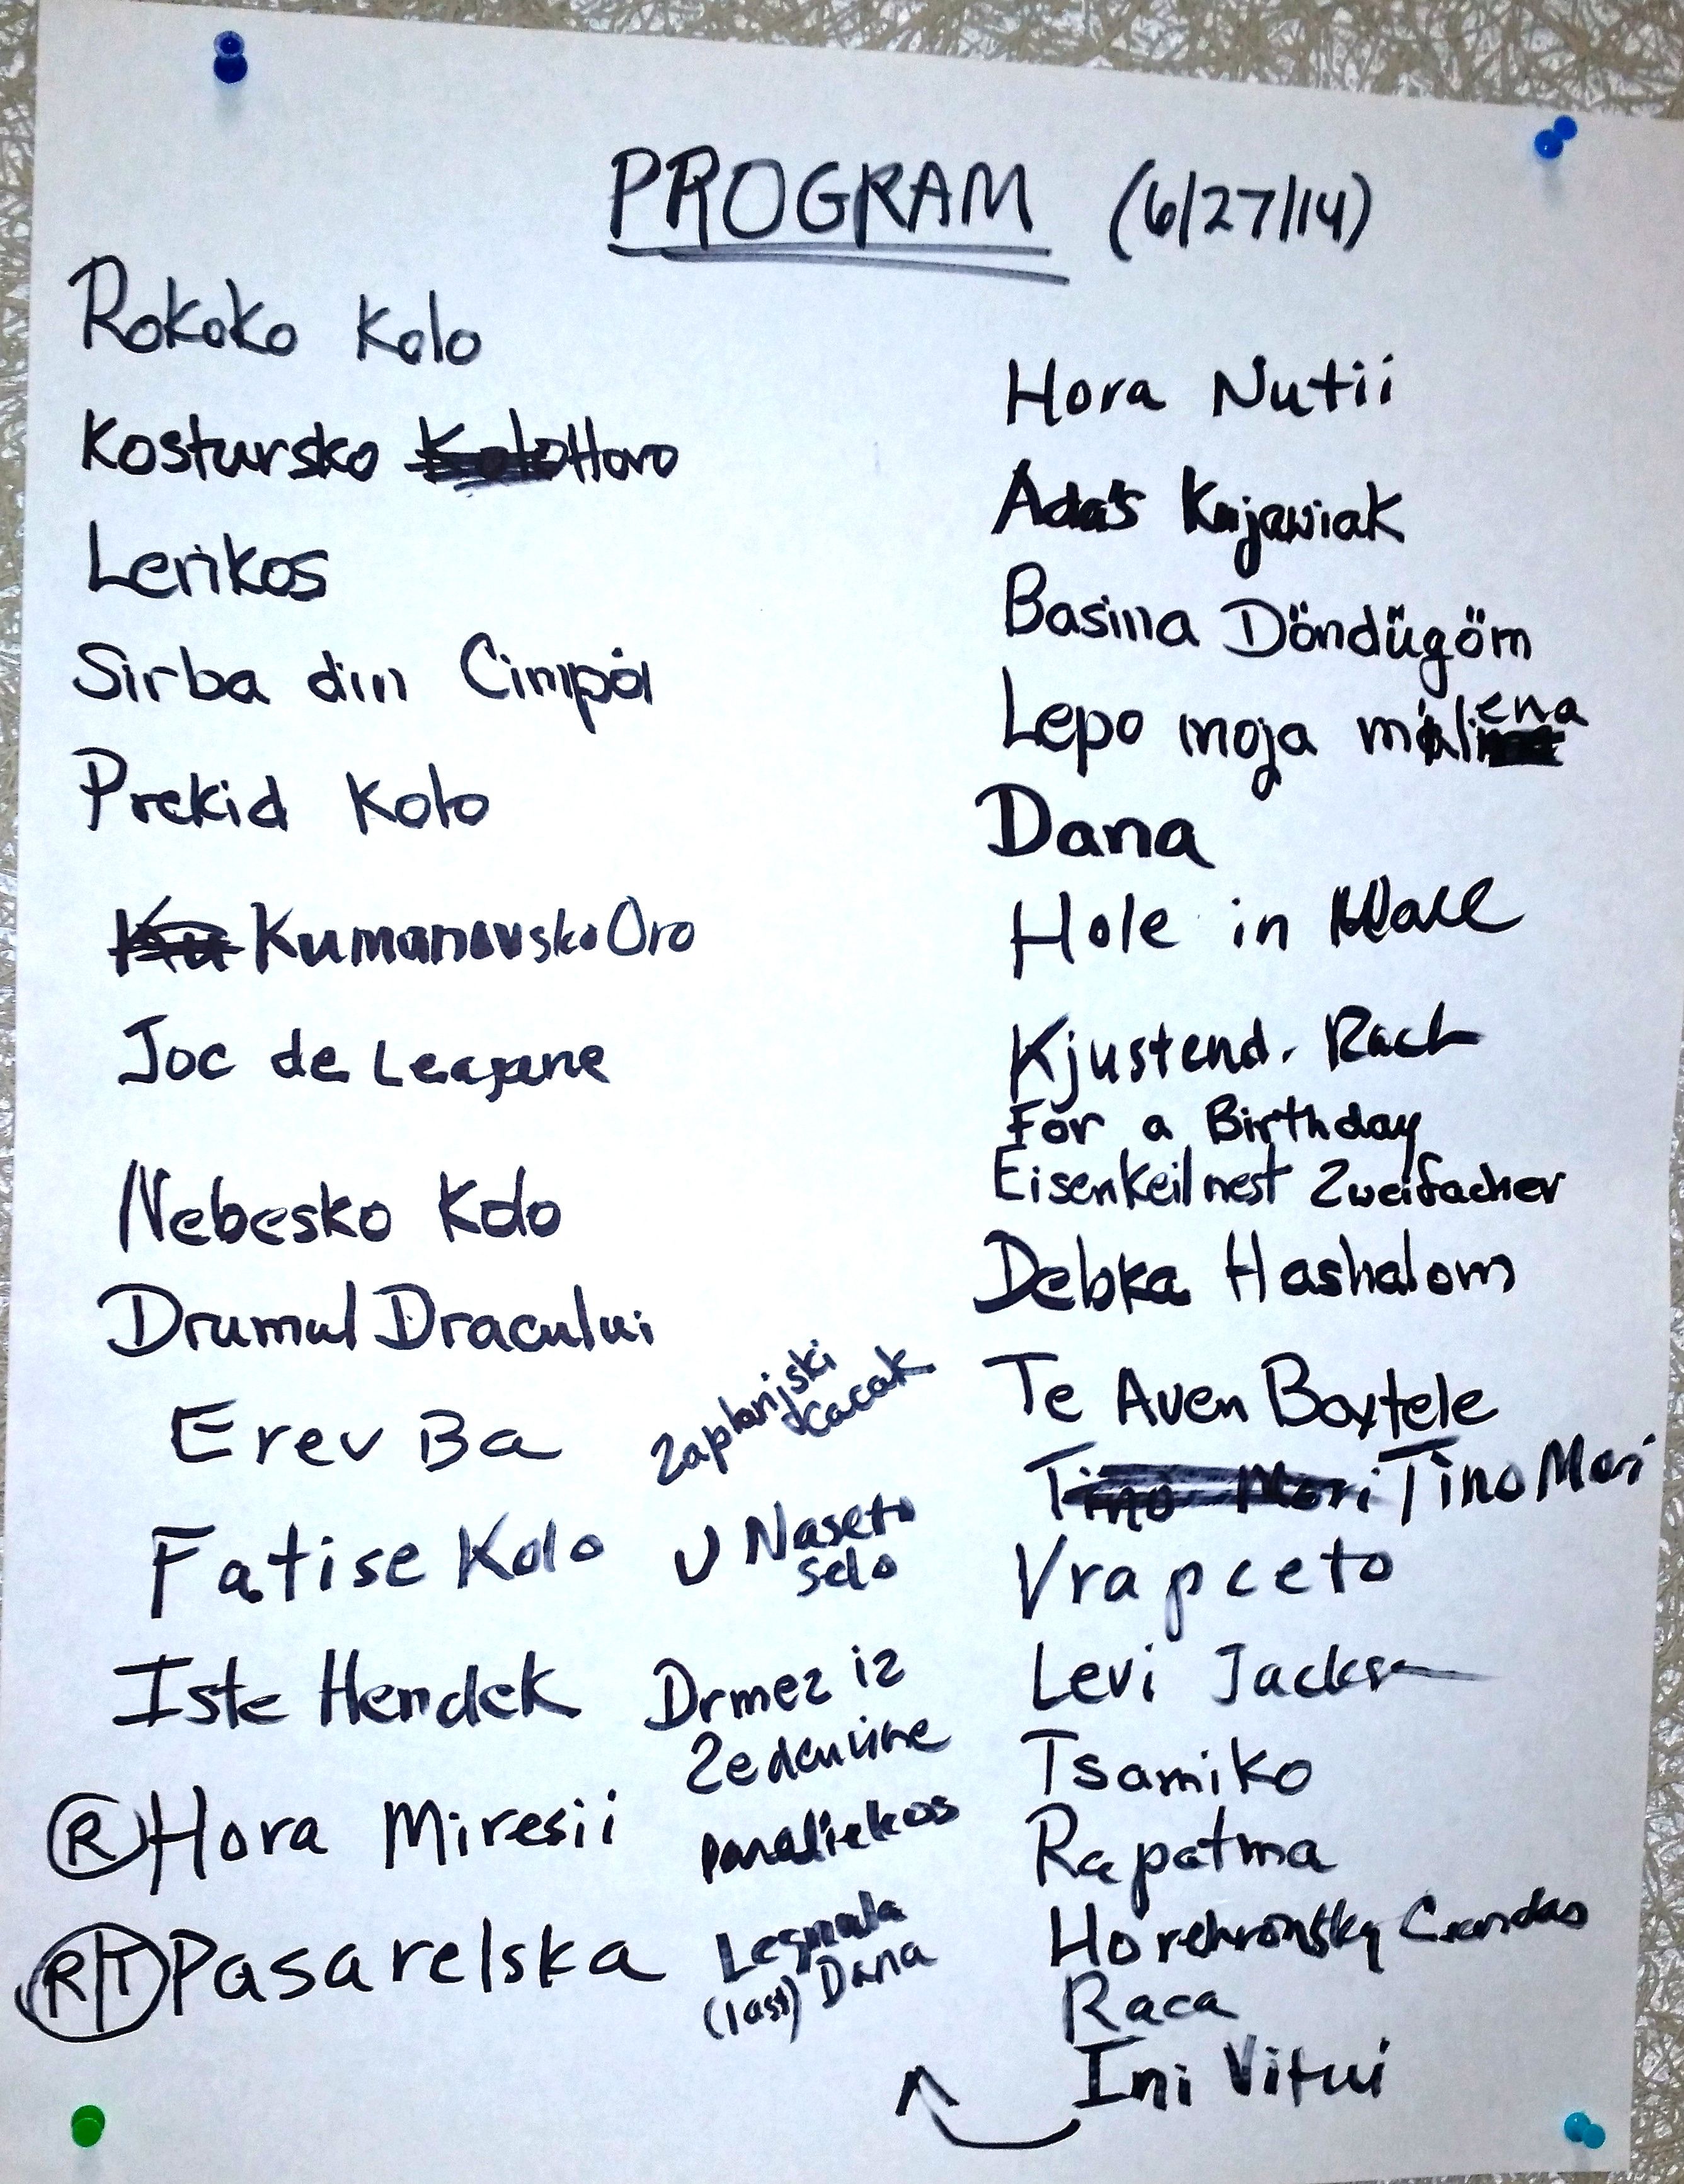 PROGRAM (6/27/14)
Rokoko Kolo
Kostursko Kolo Horo
Lerikos
Sirba din Cimpoi
Prekid Kolo
Ku Kumanovsko Oro
Joc de Leagane
Nebesko Kolo
Drumul Dracului
Erev Ba
Fatise Kolo
Iste Hendek
R Hora Miresii
RT Pasarelska
Zaplanjski
cacak
U Naseto
selo
Drmez iz
Zedenine
Panaliekos
Lesnala
(last) Dana
Hora Nutii
Ada's Kujawiak
Basina Döndügöm
Lepo moja milena
Dana
Hole in Wall
Kjustend. Rach
For a Birthday
Eisenkeilnest Zweifacher
Debka Hashalom
Te Aven Boxtele
Tino Mori Tino Mori
Vrapceto
Levi Jackson
Tsamiko
Rapatma
Horehronsky Csardas
Raca
Ini Vitui